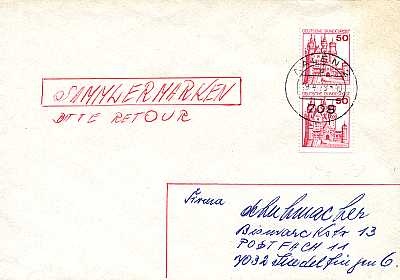 DEUTSCHE BUNDESPOST
50
AALEN
DEUTSCHE BUNDESPOST
50
708
SAMMLERMARKEN
BITTE RETOUR
Firma
Schuhmacher
Bismarckstr 13
POSTFACH 11
7032 Sindelfingen 6.